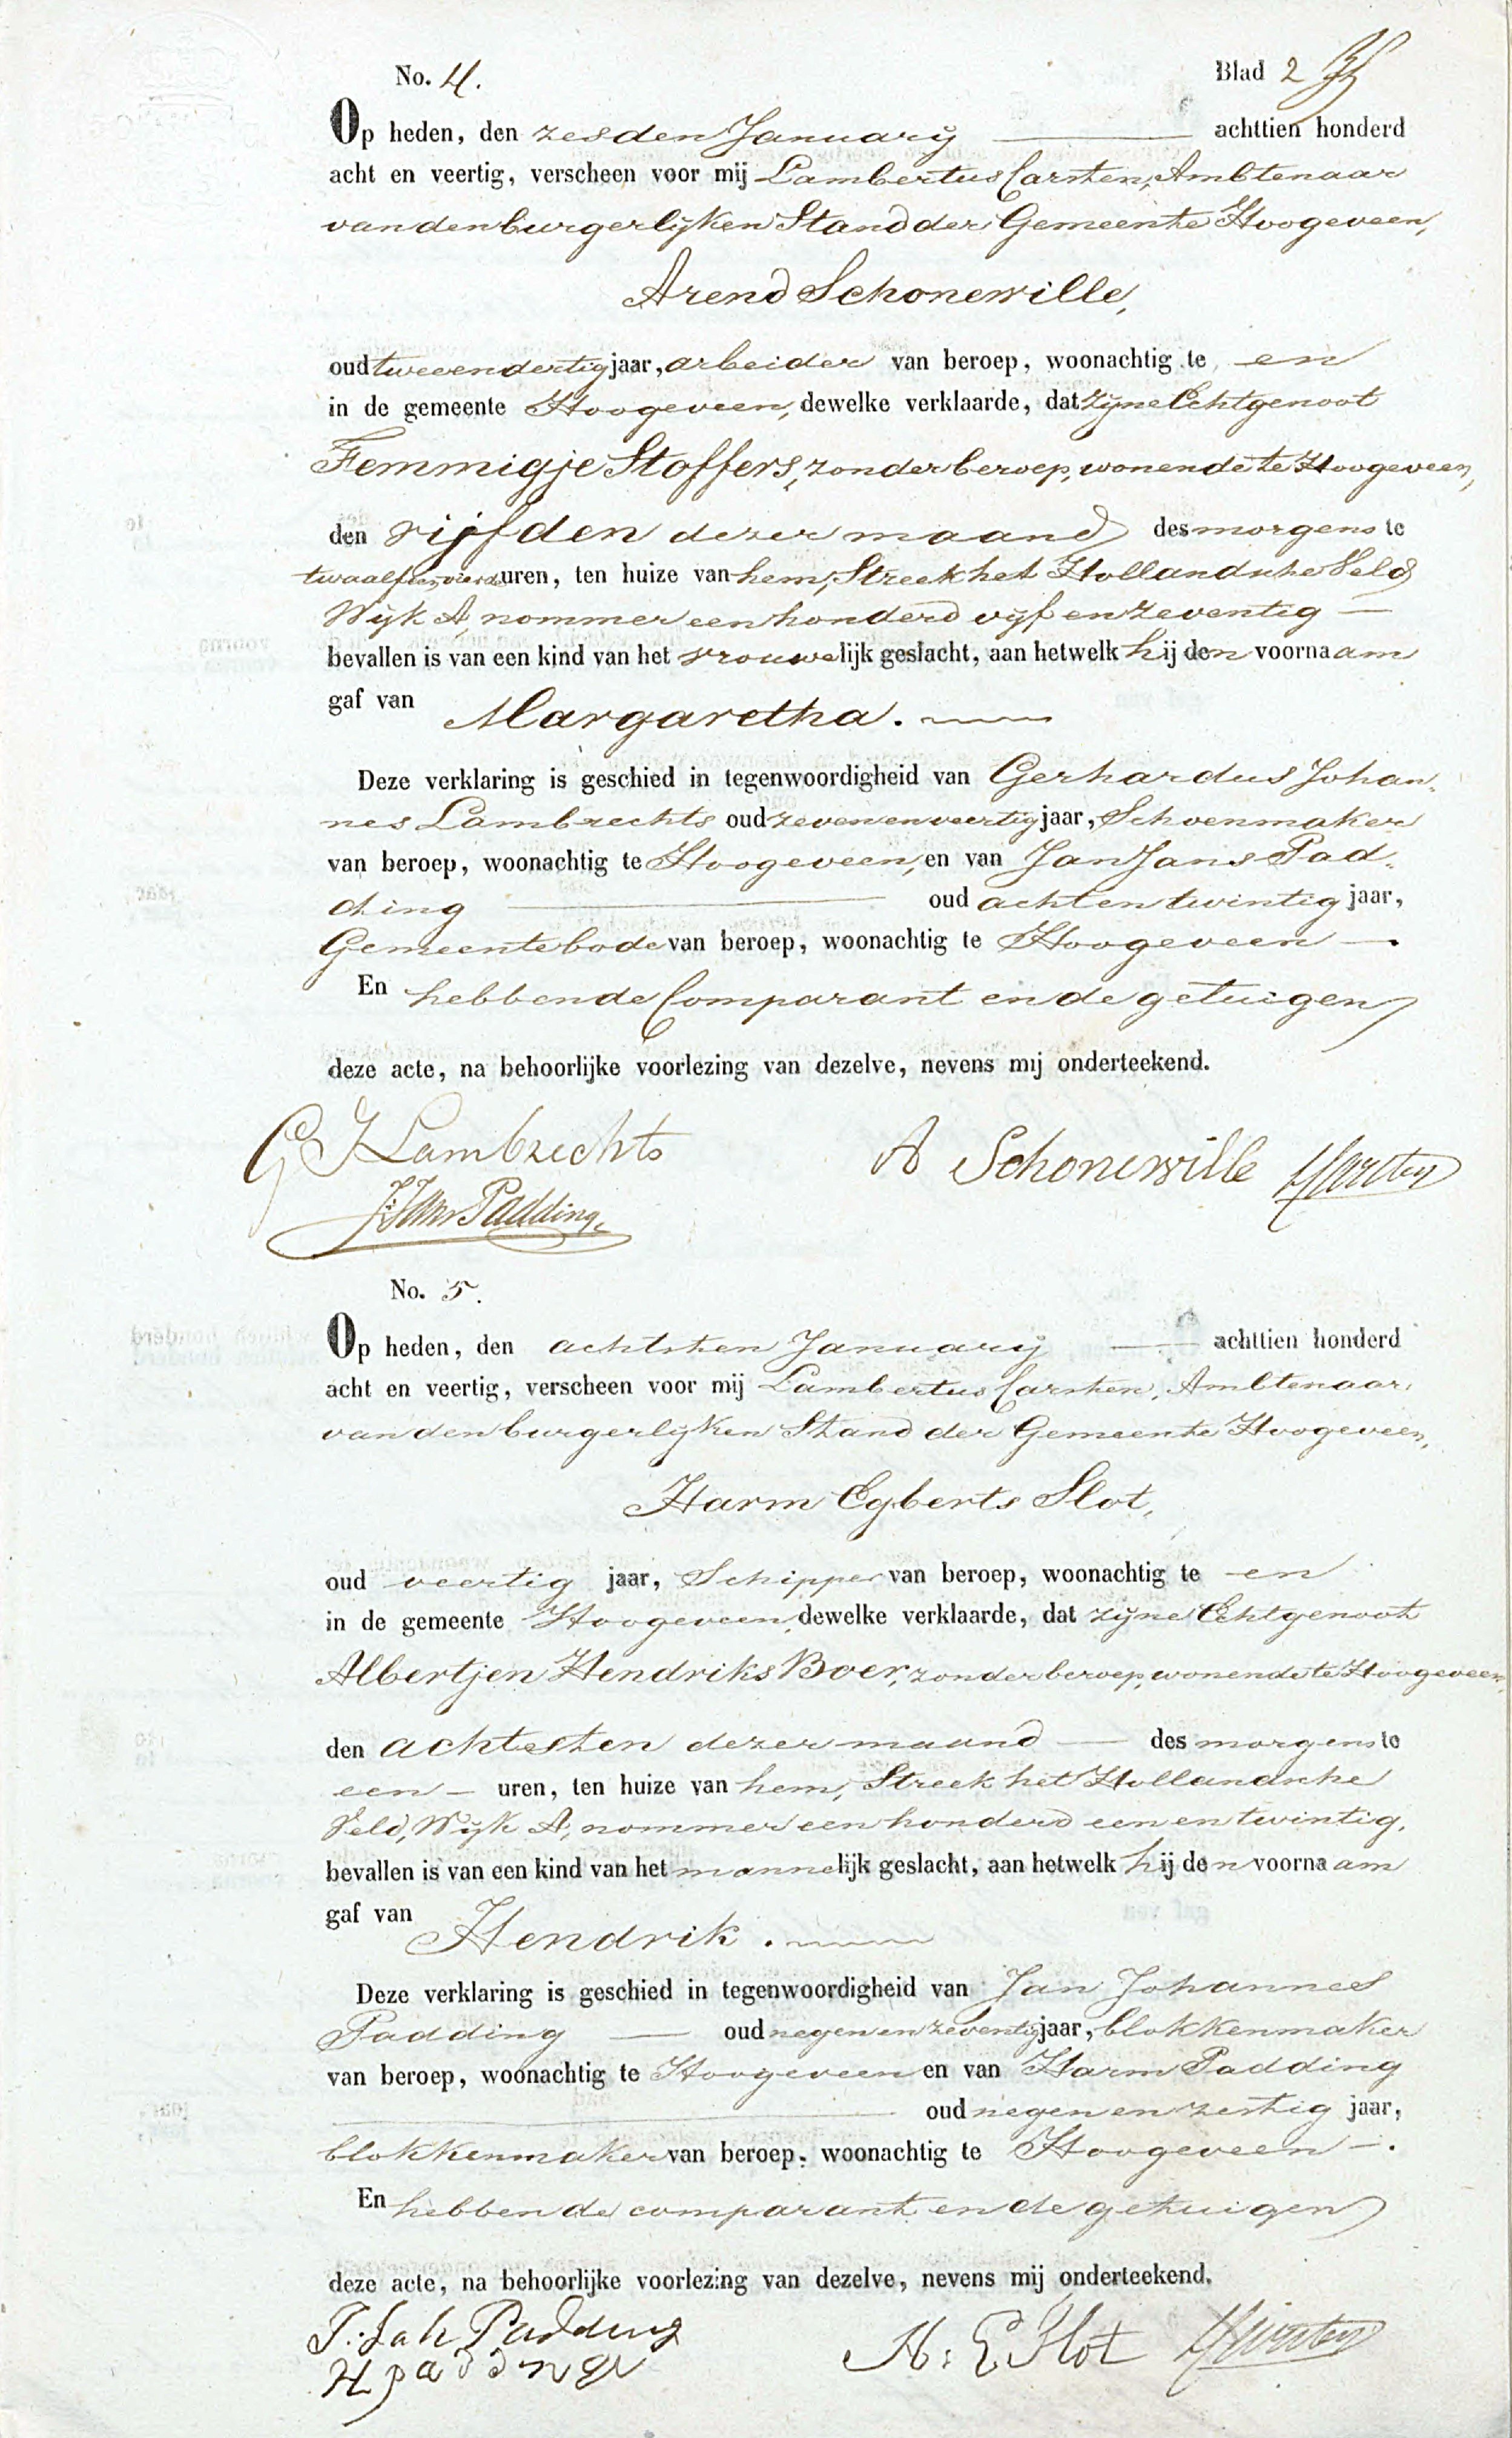 No. 4.
Blad 2
Op heden, den zesden January achttien honderd
acht en veertig, verscheen voor mij Lambertus Carsten, Ambtenaar
van den burgerlijken Stand der Gemeente Hoogeveen,
Arend Schonewille,
oud tweeendertig jaar, arbeider van beroep, woonachtig te en
in de gemeente Hoogeveen, dewelke verklaarde, dat zijne Echtgenoot
Femmigje Stoffers, zonder beroep, wonende te Hoogeveen,
den vijfden dezer maand des morgens te
twaalf uren, ten huize van hem, Streek het Hollandsche Veld
Wijk A, nommer een honderd vijf en zeventig
bevallen is van een kind van het vrouwelijk geslacht, aan hetwelk hij den voornaam
gaf van Margaretha.
Deze verklaring is geschied in tegenwoordigheid van Gerhardus Johan-
nes Lambrechts oud zeven en veertig jaar, Schoenmaker
van beroep, woonachtig te Hoogeveen, en van Jan Jans Pad-
ding oud acht en twintig jaar,
Gemeentebode van beroep, woonachtig te Hoogeveen.
En hebben de Comparant en de getuigen
deze acte, na behoorlijke voorlezing van dezelve, nevens mij onderteekend.
G J Lambrechts
A Schonewille LCarsten
J: Jans Padding.
No. 5.
Op heden, den achtsten January achttien honderd
acht en veertig, verscheen voor mij Lambertus Carsten, Ambtenaar
van den burgerlijken Stand der Gemeente Hoogeveen,
Harm Egberts Slot,
oud veertig jaar, Schipper van beroep, woonachtig te en
in de gemeente Hoogeveen, dewelke verklaarde, dat zijne Echtgenoot
Albertjen Hendriks Boer, zonder beroep, wonende te Hoogeveen,
den achtesten dezer maand des morgens te
een uren, ten huize van hem, Streek het Hollandsche
Veld, Wijk A, nommer een honderd een en twintig,
bevallen is van een kind van het mannelijk geslacht, aan hetwelk hij den voornaam
gaf van Hendrik.
Deze verklaring is geschied in tegenwoordigheid van Jan Johannes
Padding oud negen en zeventig jaar, blokkenmaker
van beroep, woonachtig te Hoogeveen en van Harm Padding
oud negen en zestig jaar,
blokkenmaker van beroep, woonachtig te Hoogeveen.
En hebben de comparant en de getuigen
deze acte, na behoorlijke voorlezing van dezelve, nevens mij onderteekend.
J: Joh Padding
H: E Slot LCarsten
H padding